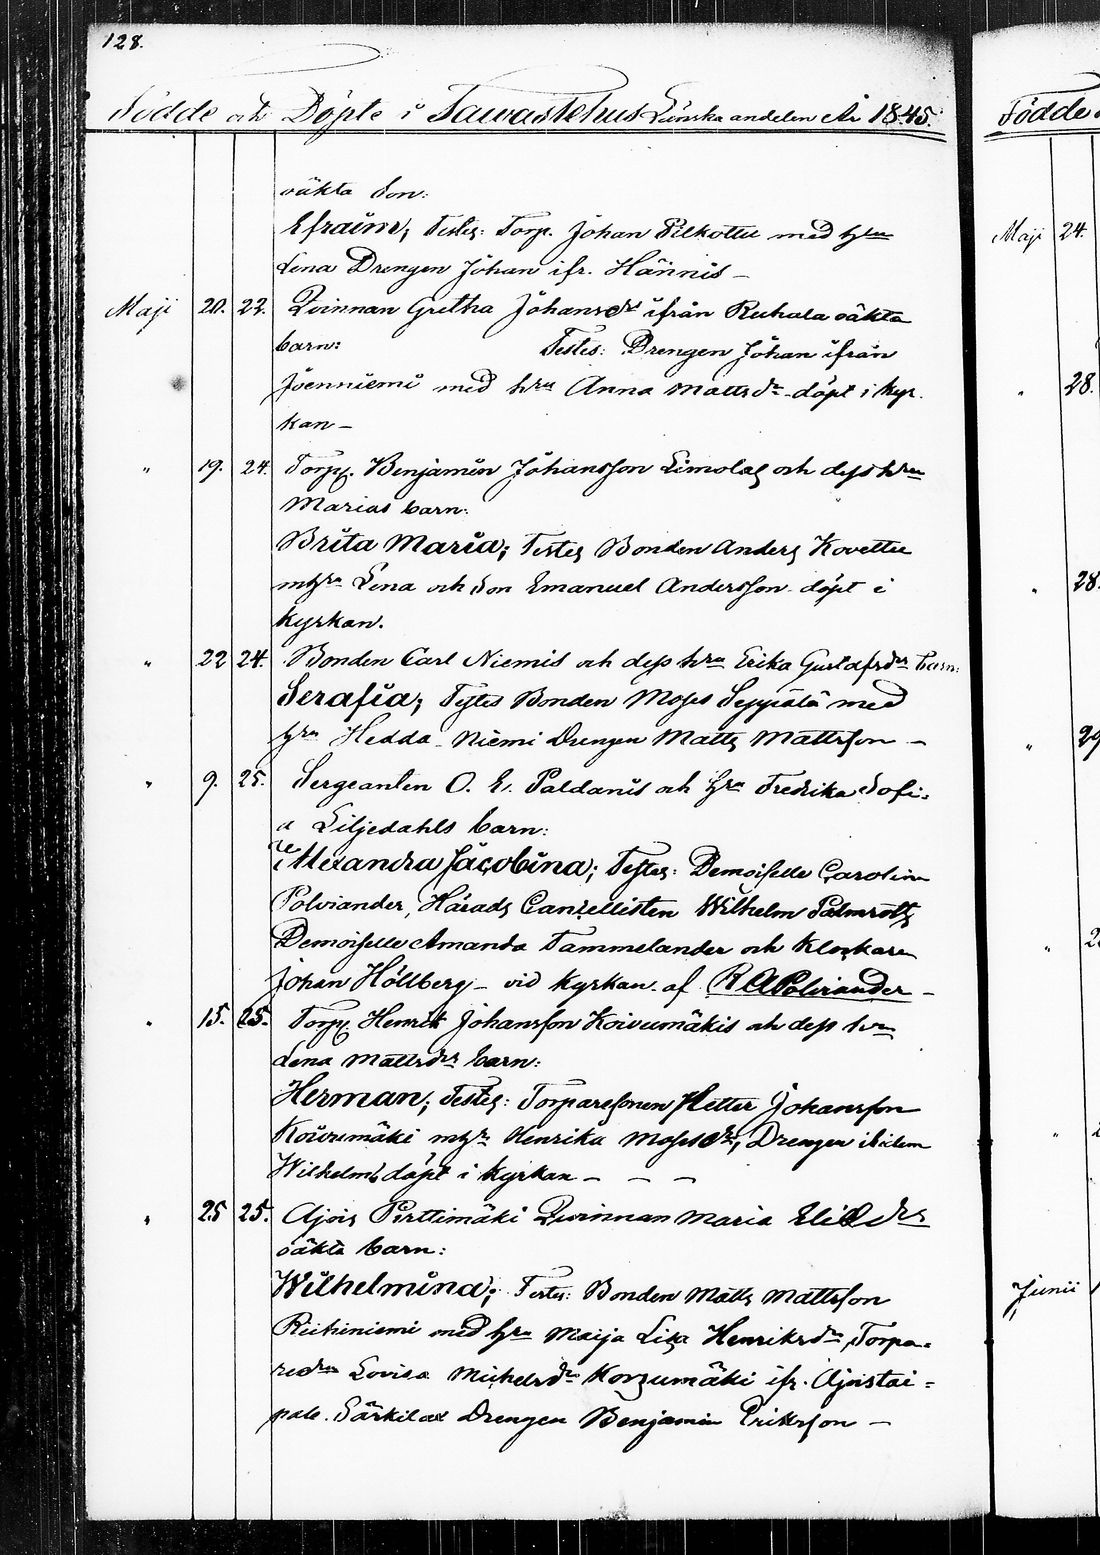 128.
Födde och Döpte i Tawastehus Länska andelen År 1845.
Födde
oäkta Son:
Efraim; Testes: Torp. Johan Pilkottu med hru
Lena Drengen Johan ifr. Hännis –
Maji 20. 22. Qvinnan Gretha Johansdr ifrån Ruhala oäkta
barn: Testes: Drengen Johan ifrån
Joenniemi med hru Anna Mattsdr döpt i kyr-
kan –
" 19. 24. Torp. Benjamin Johansson Limolas och dess hru
Marias barn:
Brita Maria; Testes Bonden Anders Kovettu
mhru Lena och Son Emanuel Andersson döpt i
kyrkan.
" 22 24. Bonden Carl Niemis och dess hru Erika Gustafsdrs barn:
Serafia; Testes Bonden Moses Seppälä med
hru Hedda Niemi Drengen Matts Mattsson –
" 9. 25. Sergeanten O. E. Paldanis och hru Fredrika Sofi-
a Liljedahls barn:
Alexandra Jacobina; Testes: Demoiselle Carolina
Polviander, Härads Cancellisten Wilhelm Palmroth
Demoiselle Amanda Tammelander och Klockaren
Johan Hållberg – vid kyrkan af R A Polviander –
" 15. 25. Torp. Henrik Johansson Koivumäkis och dess hru
Lena Mattsdrs barn:
Herman; Testes: Torparesonen Petter Johansson
Koivumäki mhru Henrika Mosesdr, Drengen ibidem
Wilhelm, döpt i kyrkan – – –
" 25 25. Ajois Perttimäki Qwinnan Maria Eliedrs
oäkta barn:
Wilhelmina; Testes: Bonden Matts Mattsson
Riihiniemi med hru Maija Lisa Henriksdr, Torpa-
redrn Lovisa Michelsdr Korpumäki ifr. Ajostai-
pale. Särkilax Drengen Benjamin Eriksson –
Maji 24.
" 28.
" 28.
" 29
"
"
Junii